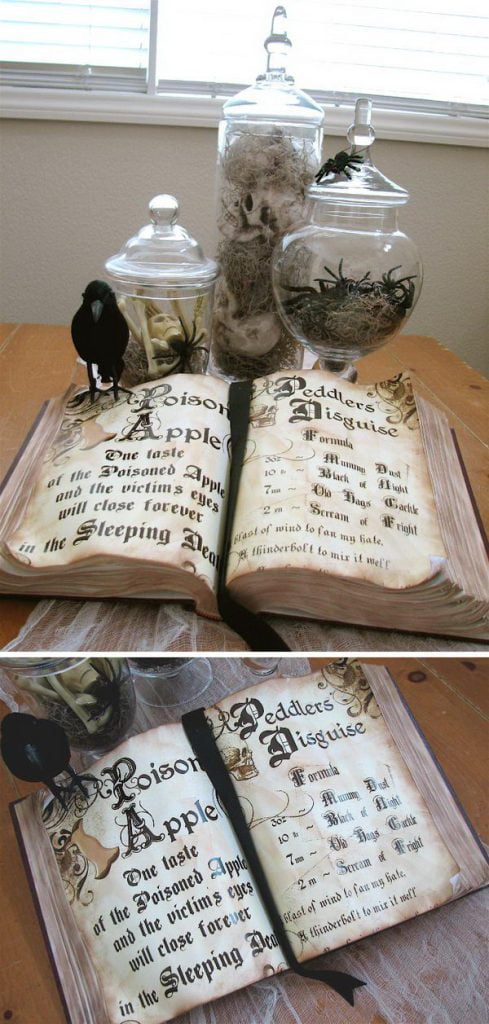 Poison
Apple
One taste
of the Poisoned Apple
and the victim's eyes
will close forever
in the Sleeping Dea
Peddlers
Disguise
Formula
~ Mummy Dust
10 ~ Black of Night
7 ~ Old Hags Cackle
2 ~ Scream of Fright
blast of wind to fan my hate,
A thinderbolt to mix it well
Poison
Apple
One taste
of the Poisoned Apple
and the victim's eyes
will close forever
in the Sleeping Dea
Peddlers
Disguise
Formula
~ Mummy Dust
10 ~ Black of Night
7 ~ Old Hags Cackle
2 ~ Scream of Fright
blast of wind to fan my hate,
A thinderbolt to mix it well